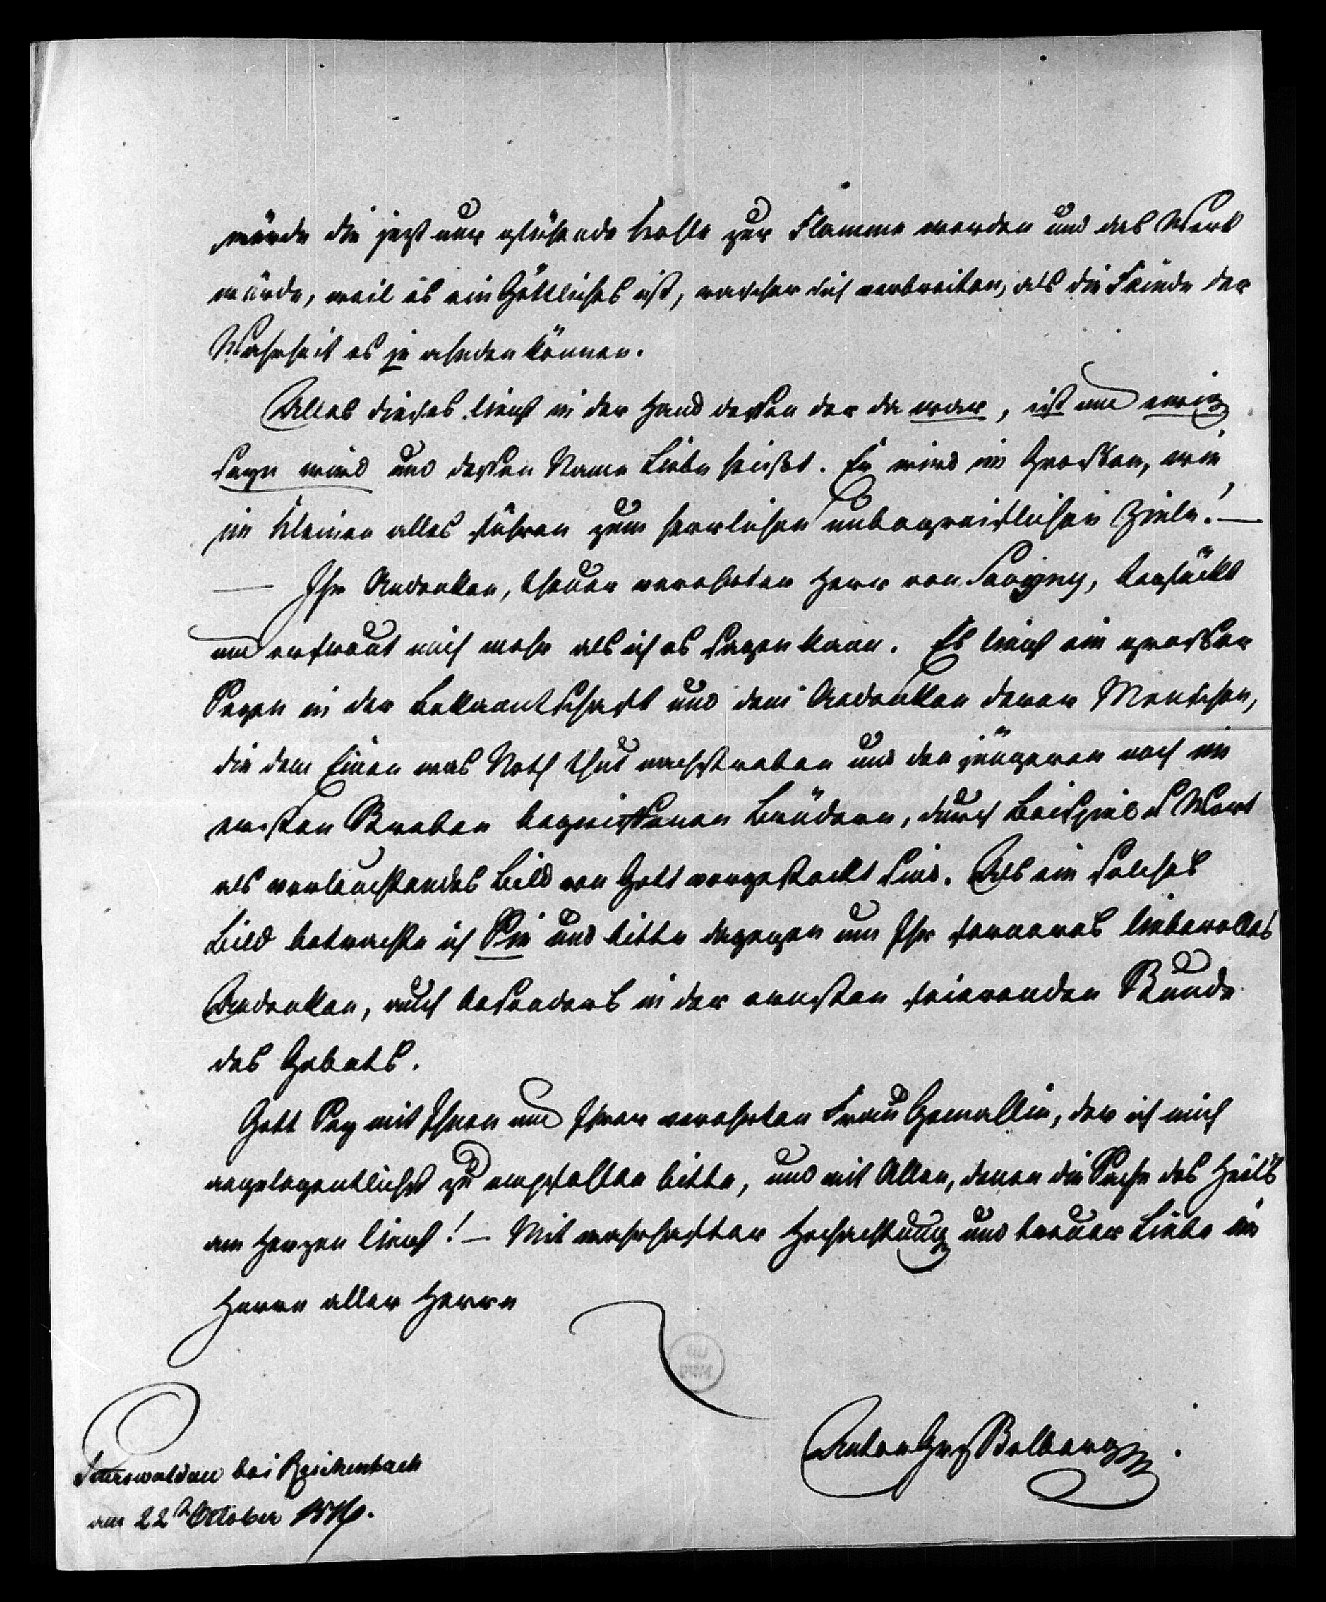 würde die jezt nur glühende Kohle zur Flamme werden und das Werk
würde, weil es ein Göttliches ist, rascher sich verbreiten, als die Feinde der
Wahrheit es je ahnden können.
Alles dieses liegt in der Hand dessen der da war, ist und ewig
seyn wird und dessen Name Liebe heißt. Er wird im Grossen, wie
im Kleinen alles führen zum herrlichen unbegreiflichen Ziele! —
— Ihr Andenken, theuer verehrter Herr von Savigny, beglückt
und erfreut mich mehr als ich es sagen kann. Es liegt ein grosser
Segen in der Bekanntschaft und dem Andenken derer Menschen,
die dem Einen was Noth thut nachstreben und den jüngeren noch im
ersten Streben begriffenen Brüdern, durch Beispiel u Wort
als vorleuchtendes Bild von Gott vorgesteckt sind. Als ein solches
Bild betrachte ich Sie und bitte dagegen um Ihr ferneres liebevolles
Andenken, auch besonders in der ernsten feierenden Stunde
des Gebets.
Gott sey mit Ihnen und Ihrer verehrten Frau Gemallin, der ich mich
angelegentlichst zu empfehlen bitte, und mit Allen, denen die Sache des Heils
am Herzen liegt! — Mit wahrhafter Hochachtung und treuer Liebe im
Herrn aller Herrn
Anton Grf Stolberg.
bei Reichenbach
am 22t October